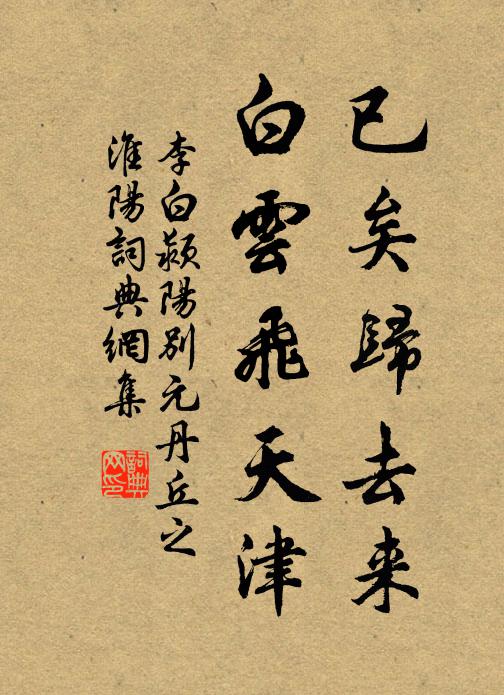 已矣歸去来
白雲飛天津
李白潁陽別元丹丘之
淮陽詞典網集
詞典网印